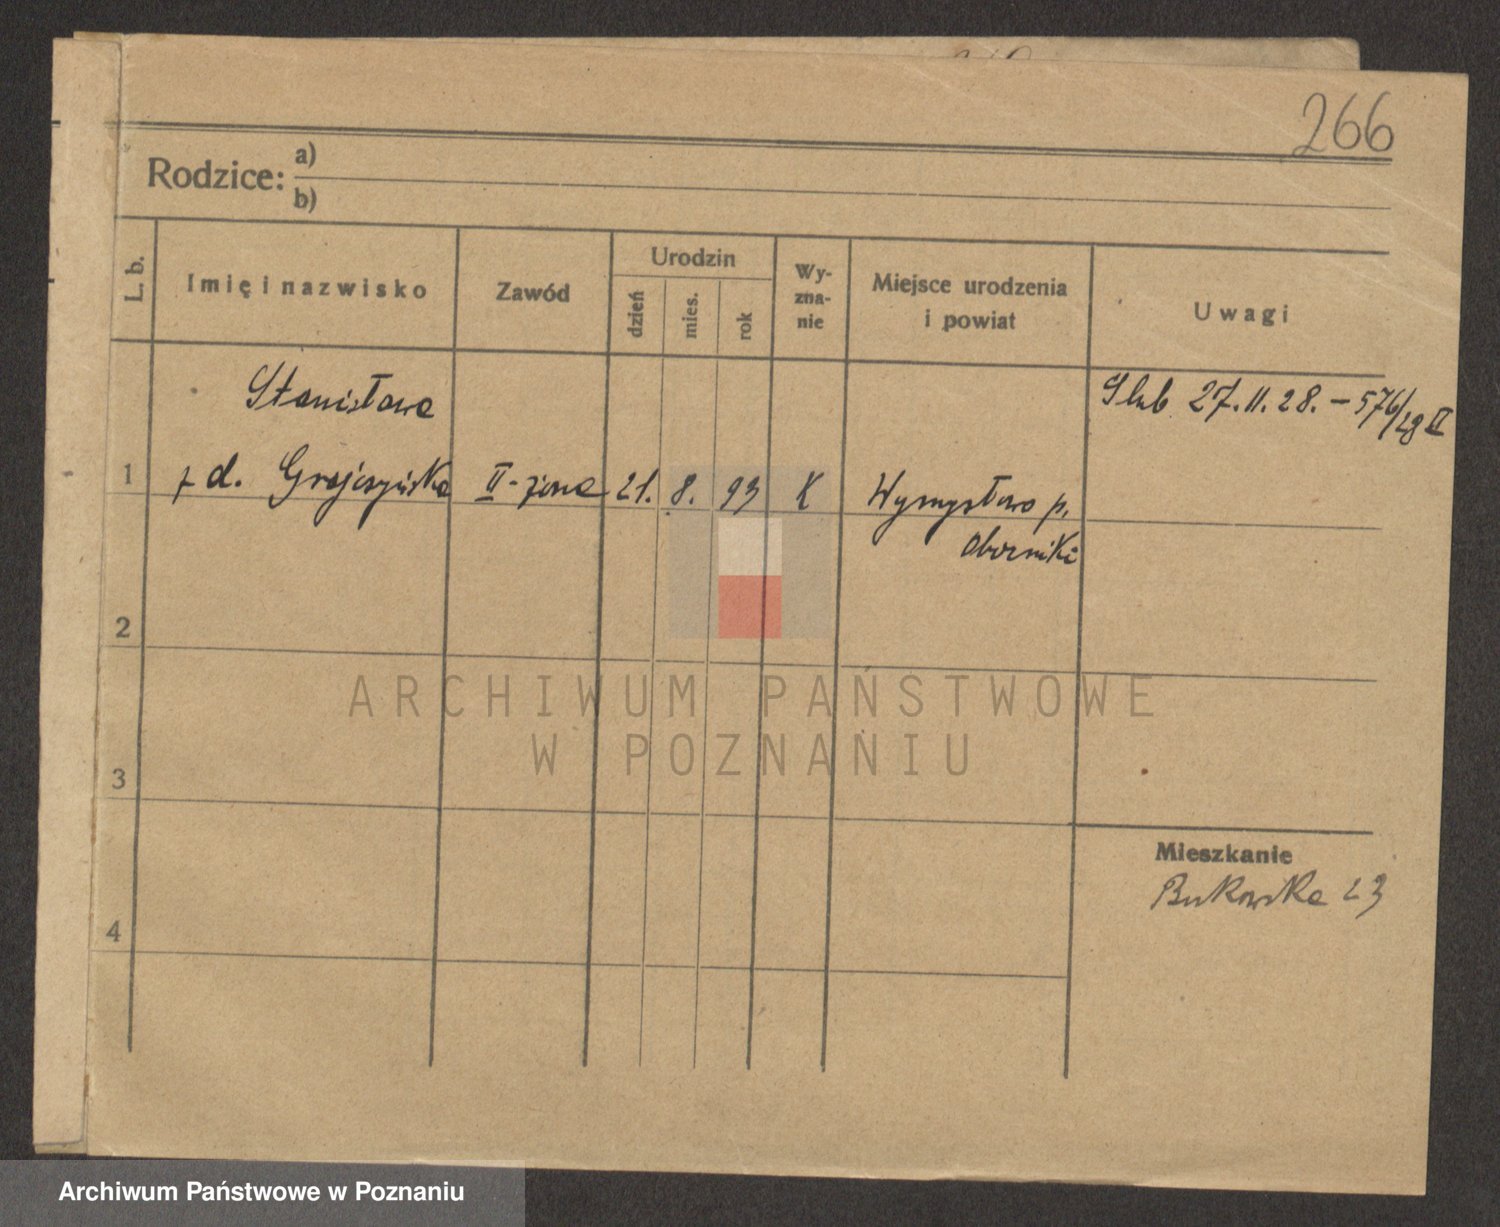 266
Rodzice: a)
b)
L. b.
Imię i nazwisko
Zawód
Urodzin
dzień
mies.
rok
Wy-
zna-
nie
Miejsce urodzenia
i powiat
Uwagi
Stanisława
Slub 27.11.28. – 576/29 II
1
z d. II-żona 21. 8. 93 K Wymysłowo p.
Oborniki
2
3
4
Mieszkanie
Bukowska 23
ARCHIWUM PAŃSTWOWE
W POZNANIU
Archiwum Państwowe w Poznaniu